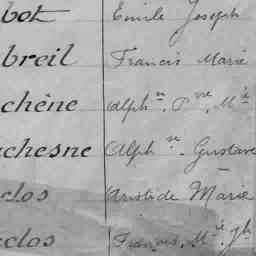 bot Emile Joseph
breil Francis Marie
chêne Alph^se. P^re, M^ie
chesne Alph^se - Gustave
clos Aristide Marie
clos François, M^ie, J^h